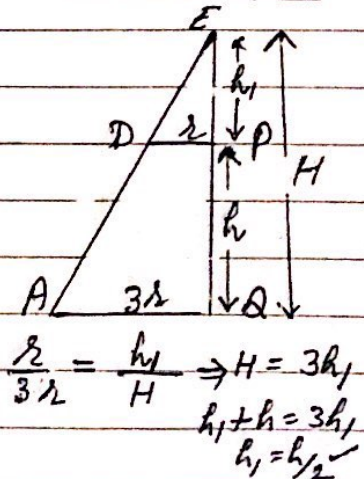 E
h₁
D r P
H
h
A 3r Q
r/3r = h₁/H ⇒ H = 3h₁
h₁ + h = 3h₁
h₁ = h/2 ✓